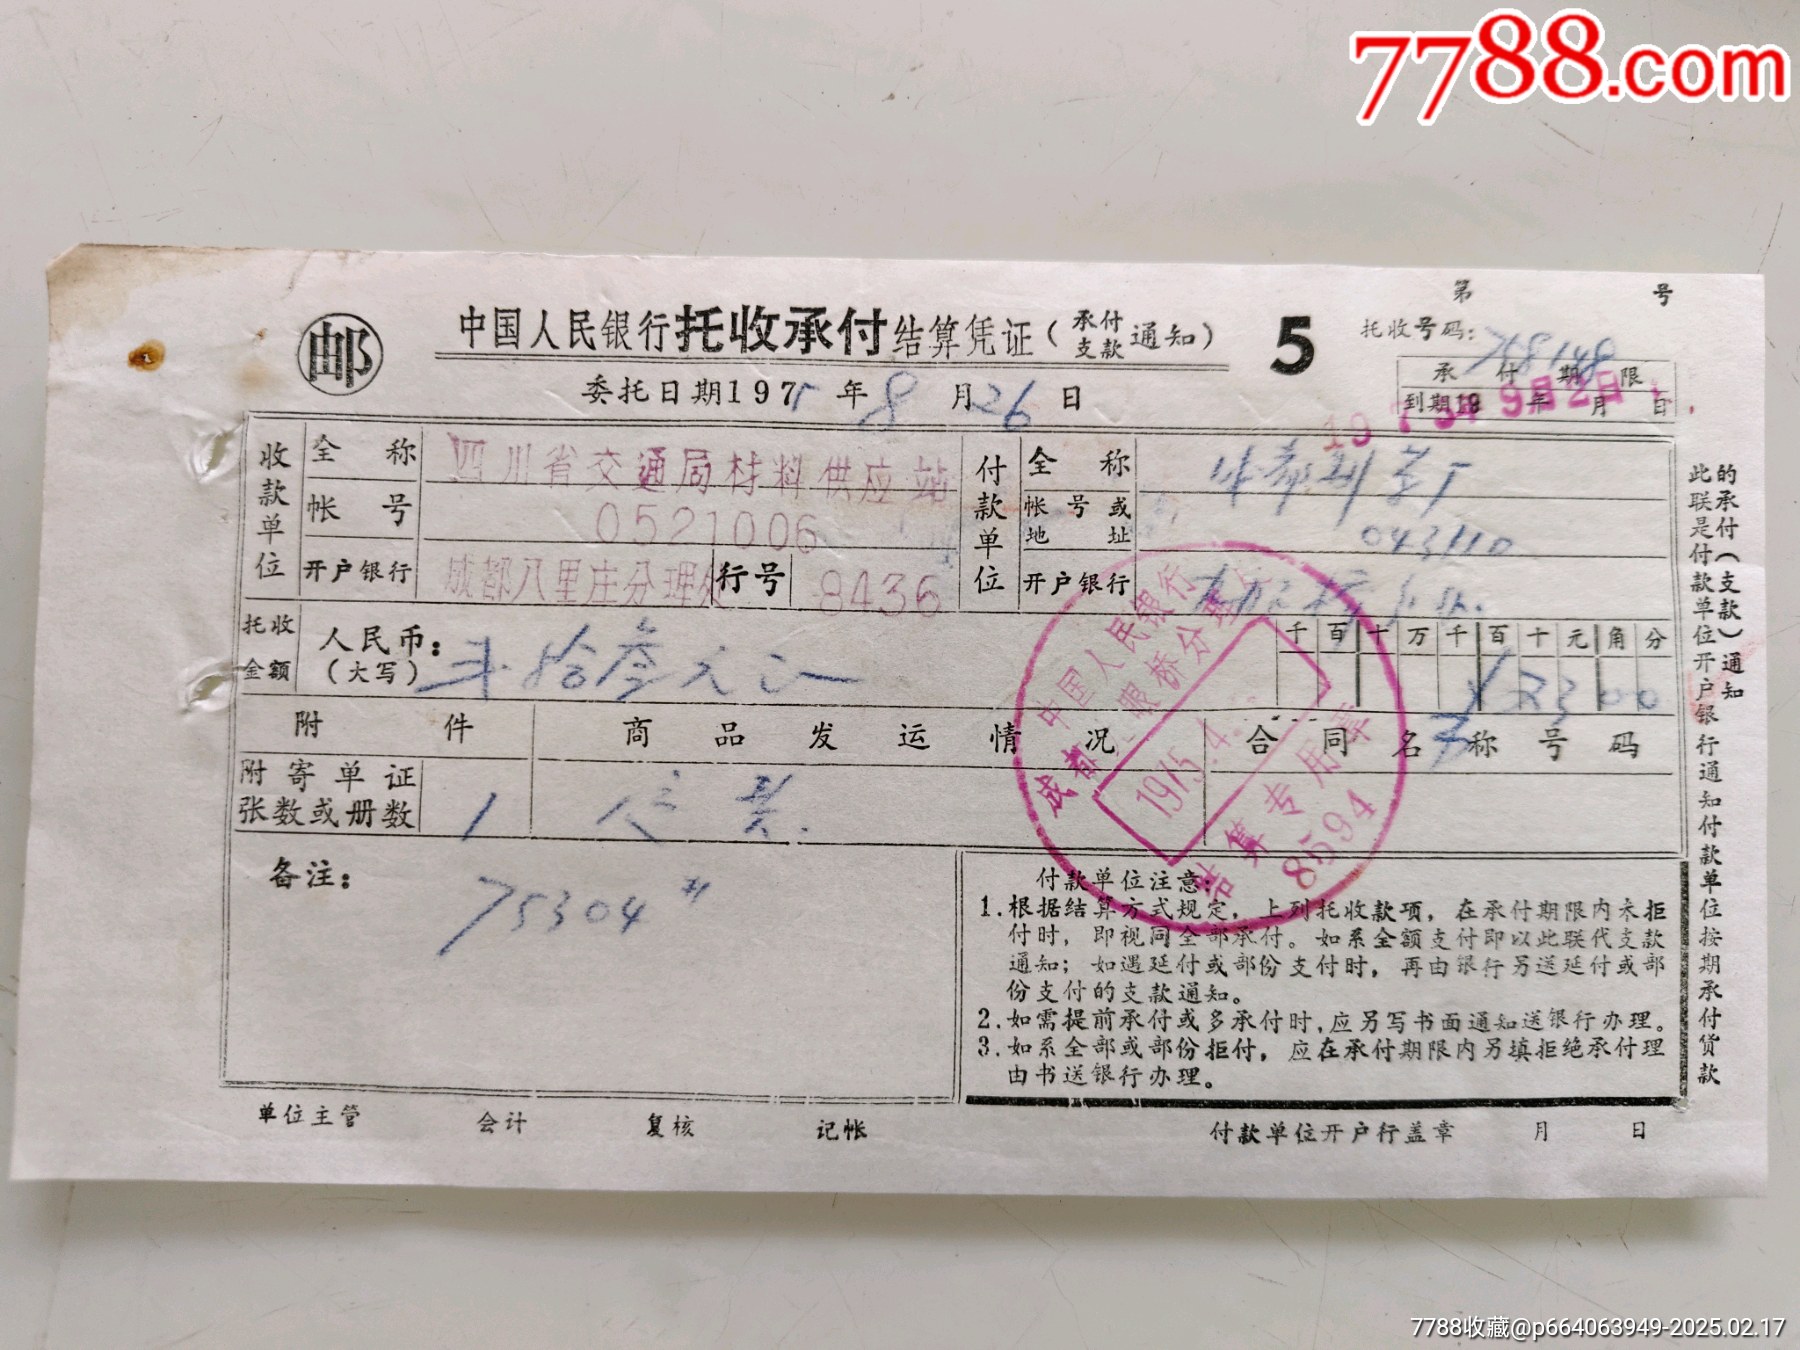 7788.com
第 号
邮
中国人民银行托收承付结算凭证(承付支款通知)
5
托收号码:
委托日期1975年8月26日
承付期限
到期19 年 月 日
9月2日
收款单位
全称
四川省交通局材料供应站
帐号
0521006
开户银行
成都八里庄分理处
行号
8436
付款单位
全称
帐号或地址
043110
开户银行
托收金额
人民币:
(大写)
千百十万千百十元角分
¥2300
附件
商品发运情况
合同名称号码
附寄单证
张数或册数
1
备注:
75304#
中国人民银行
成都
眼桥分理处
1975.4
结算专用章
8594
付款单位注意:
1.根据结算方式规定,上列托收款项,在承付期限内未拒
付时,即视同全部承付。如系全额支付即以此联代支款
通知;如遇延付或部份支付时,再由银行另送延付或部
份支付的支款通知。
2.如需提前承付或多承付时,应另写书面通知送银行办理。
3.如系全部或部份拒付,应在承付期限内另填拒绝承付理
由书送银行办理。
此联是付款单位开户银行通知付款单位按期承付货款
的承付(支款)通知
单位主管 会计 复核 记帐
付款单位开户行盖章 月 日
7788收藏@p664063949-2025.02.17